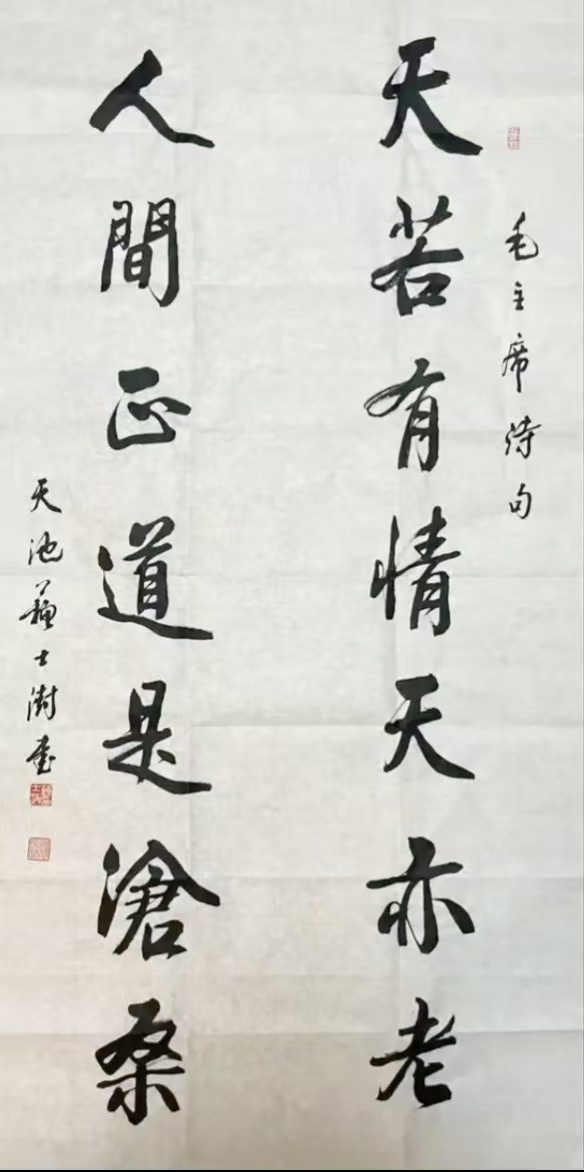 毛主席诗句
天若有情天亦老
人間正道是滄桑
天池蘇士澍書